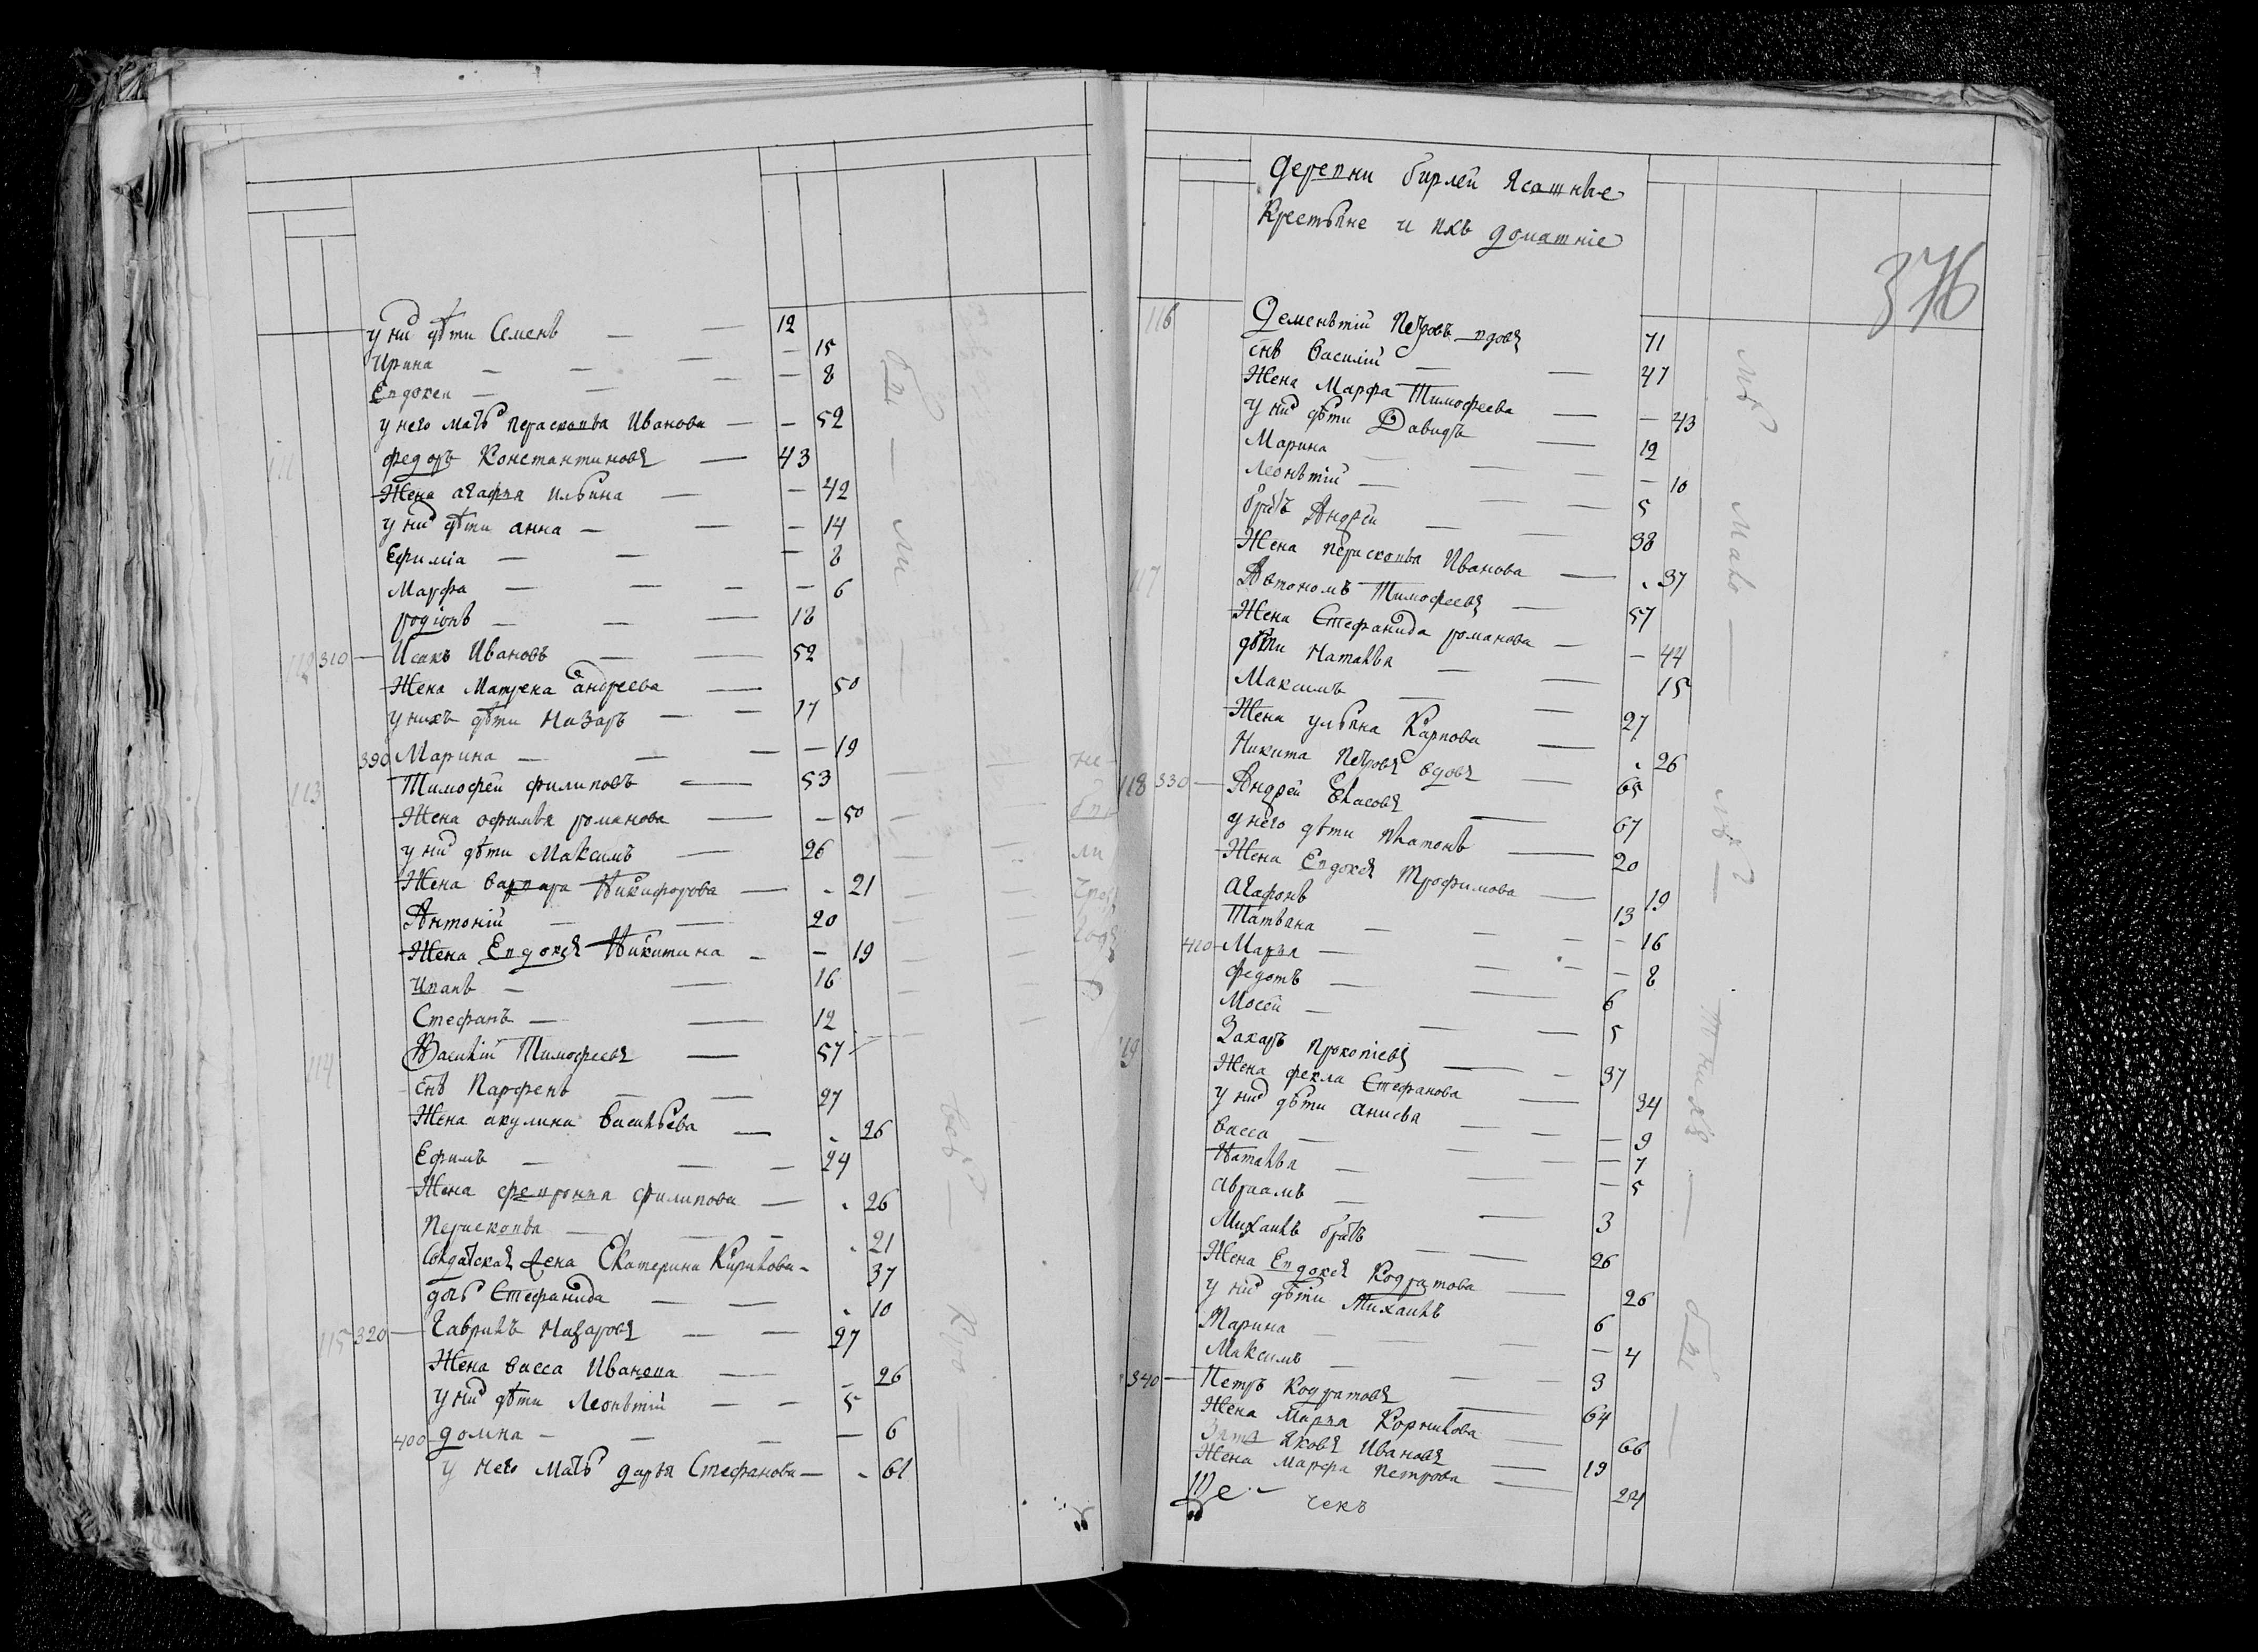 у них дѣти Семенъ — — 12
Ирина — — — 15
Епдокея — — — 8
у него мать Пераскопья Иванова — — 52
111 федоръ Константиновъ — 43
Жена агафья ильина — — 42
у них дѣти анна — — — 14
Ефиміа — — — 8
Марфа — — — — 6
родіонъ — — — 18
112 310 — Исакъ Ивановъ — — 52
Жена Матрена андреева — 50
у нихъ дѣти Назаръ — — 17
390 Марина — — — — 19
113 Тимофей филиповъ — 53
Жена офимья романова — — 50
у них дѣти Максимъ — 26
Жена варпара Никифорова — 21
Антоній — — 20
Жена Епдокея Никитина — — 19
Ипанъ — — 16
Стефанъ — — 12
114 Василій Тимофеевъ — 57
снъ Парфенъ — — 27
Жена акулина васильева — 26
Ефимъ — — — 24
Жена фепронья филипова — 26
Пераскопья — — 21
Солдатская жена Екатерина Кирилова - 37
дочь Стефанида — — 10
115 320 — Гаврилъ Назаровъ — — 27
Жена васса Иванопа — — 26
у них дѣти Леонътій — — 5
400 — домна — — — — 6
у него мать дарья Стефанова — 61
деревни бирлей ясашные
крестьяне и ихъ доматніе
376
116 Дементій Петровъ вдовъ 71
снъ василій — — 47
Жена Марфа Тимофеева — — 43
у них дѣти Давидъ — 12
Марина — — — — 10
Леонътій — — 5
братъ Андрей — — 38
Жена Пераскопья Иванова — 37
117 Автономъ Тимофеевъ — 57
Жена Стефанида романова — — 44
дѣти Наталья — — 15
Максимъ — — 27
Жена ульяна Карпова — 26
Никита Петровъ вдовъ — 65
118 330 — Андрей Власовъ — 67
у него дѣти Платонъ — 20
Жена Епдокея Трофимова — 19
агафонъ 13
Татьяна — — — — 16
410 — Марья — — — — 8
федотъ — — 6
Мосей — — — 5
119 Захаръ Прокопіевъ — — 37
Жена фекла Стефанова — 34
у них дѣти анисья — — — 9
васса — — — — 7
Наталья — — — 5
авраамъ — — 3
Михаилъ братъ — — 26
Жена Епдокея Кодратова — 26
у них дѣти Михаилъ 6
Марина — — — 4
Максимъ — — — 3
340 — Петръ Кодратовъ — 64
Жена Марья Корнилова — 66
Зять яковъ Ивановъ — 19
Жена Марфа Петрова — 24